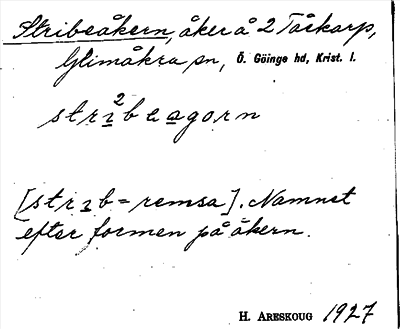 Stribeåkern, åker å 2 Tåckarp,
Glimåkra sn, Ö. Göinge hd, Krist. l.
strɪ²beagorn
[strɪb = remsa]. Namnet
efter formen på åkern.
H. ARESKOUG 1927